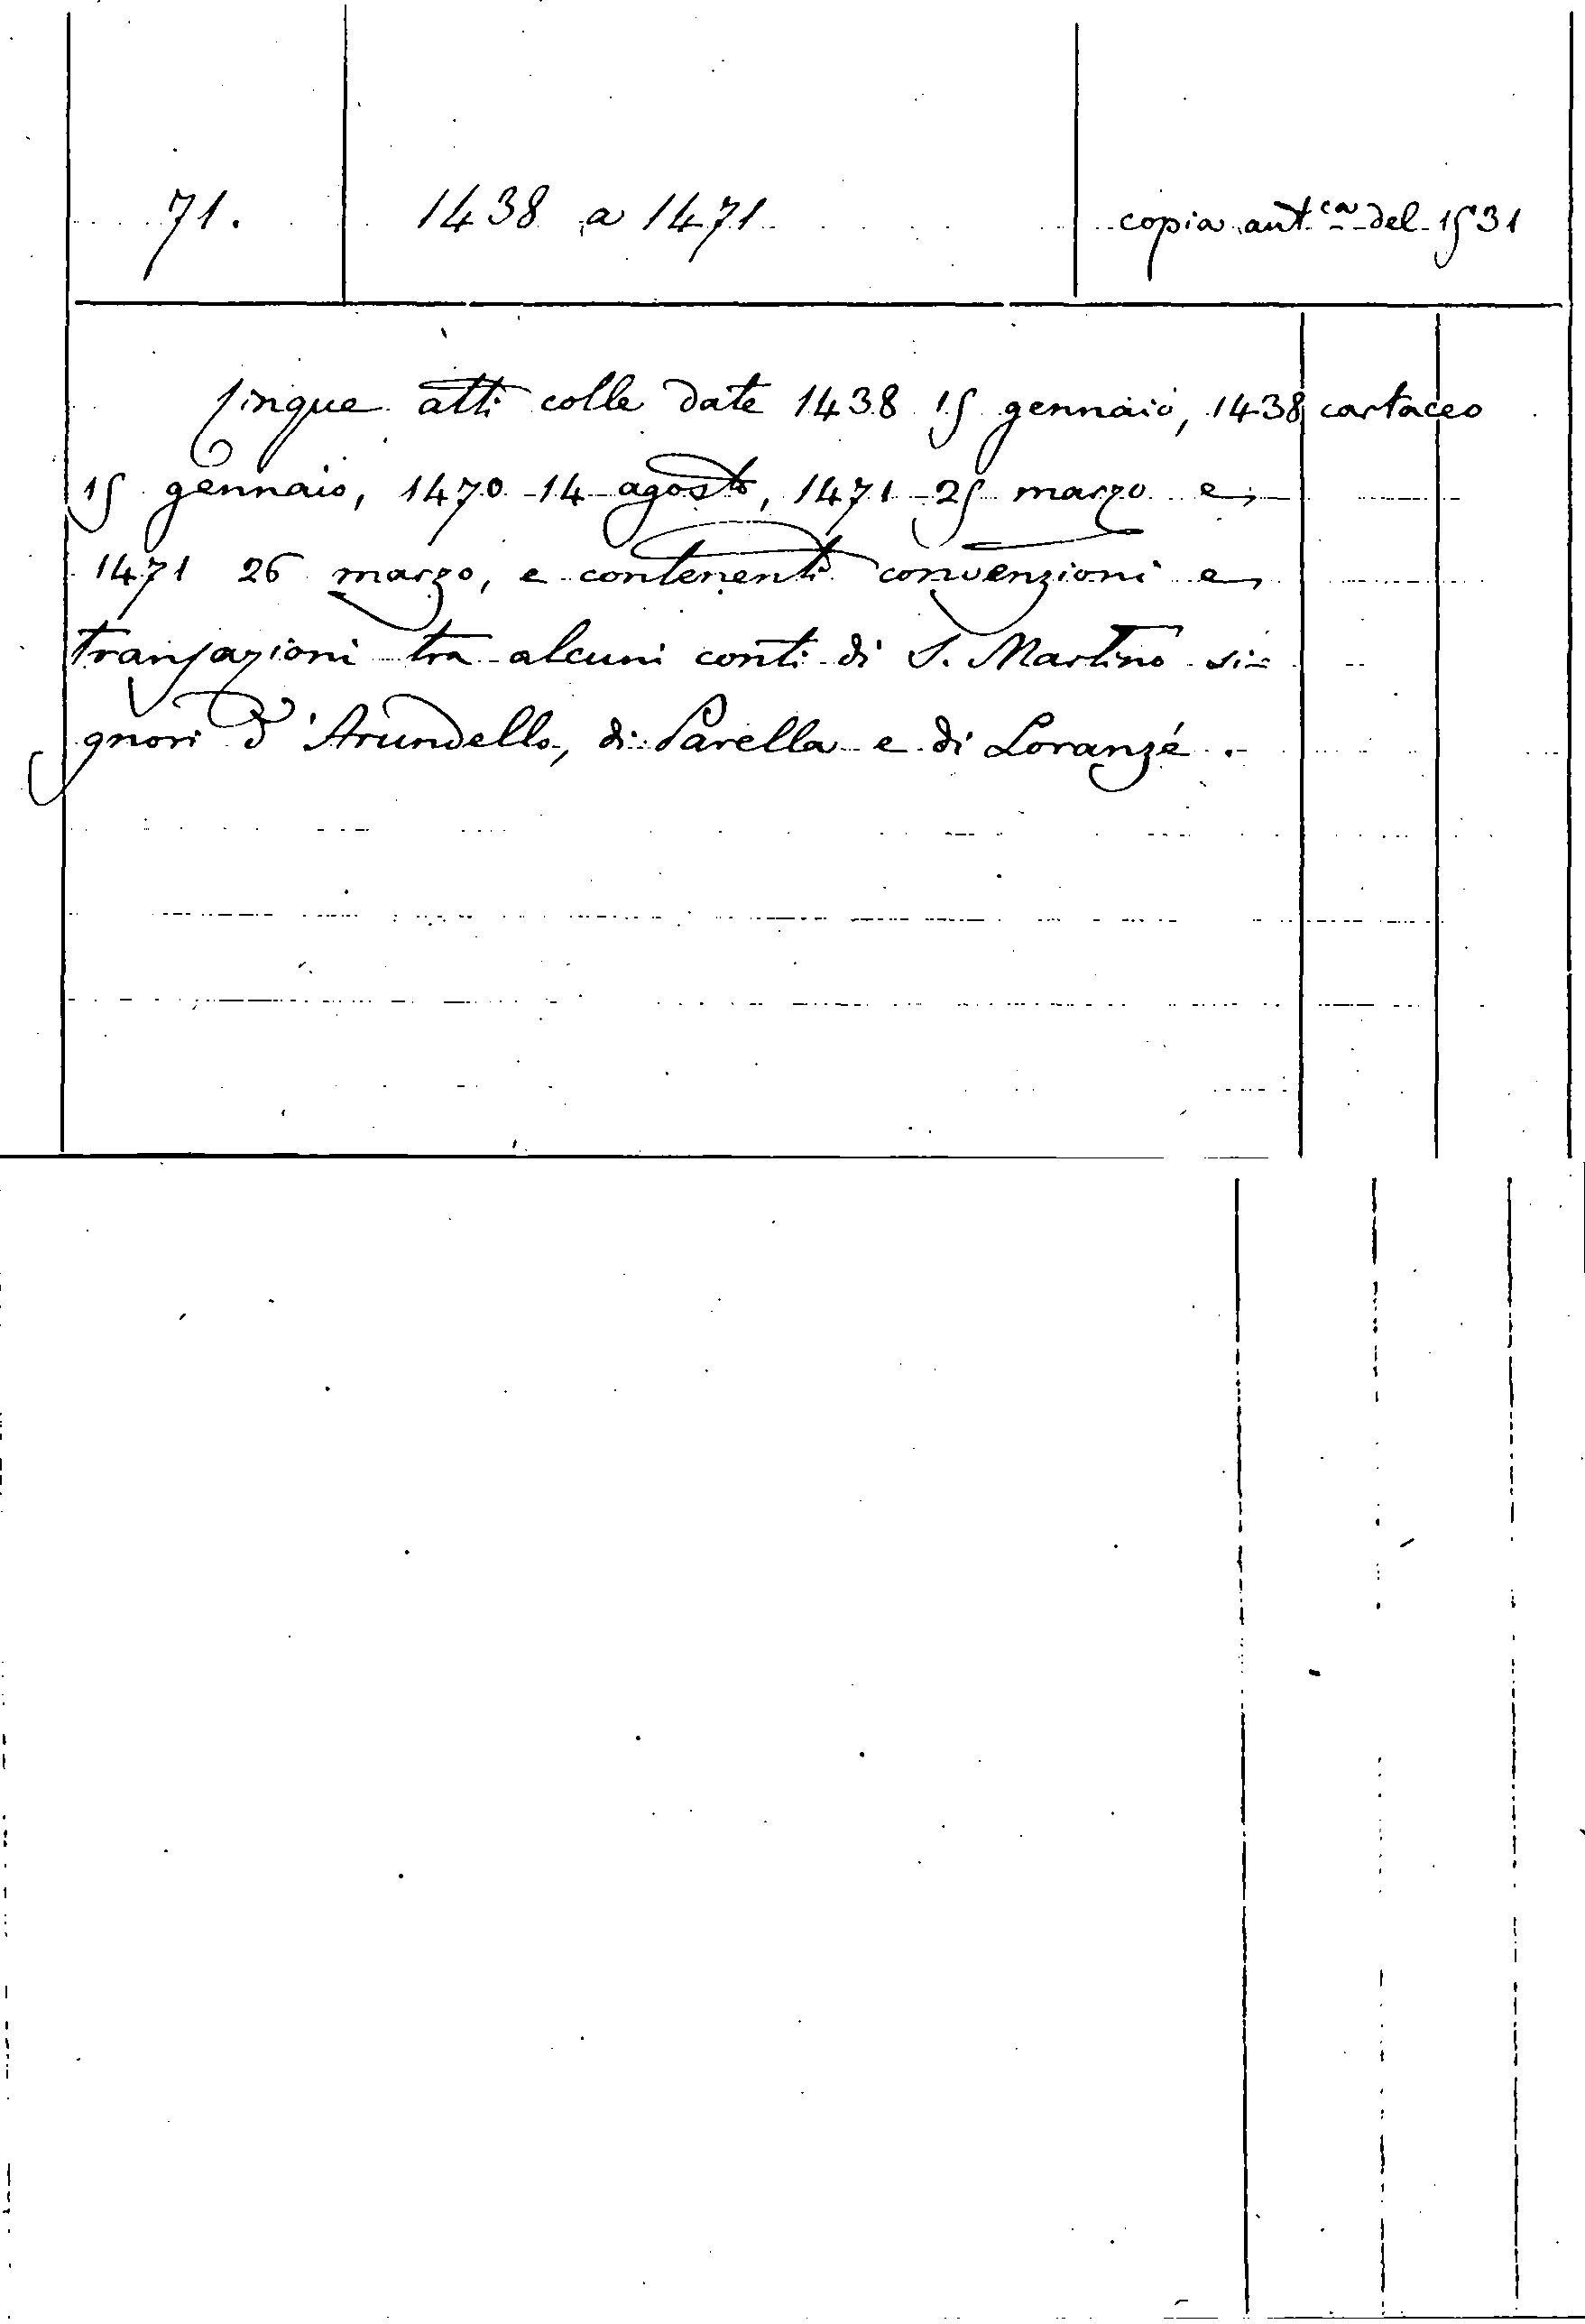 71. 1438 a 1471 copia ant.ca del 1531
Cinque atti colle date 1438 15 gennaio, 1438 cartaceo
15 gennaio, 1470 14 agosto, 1471 25 marzo e
1471 26 marzo, e contenenti convenzioni e
transazioni tra alcuni conti di S. Martino si=
gnori d'Arundello, di Parella e di Loranzé.